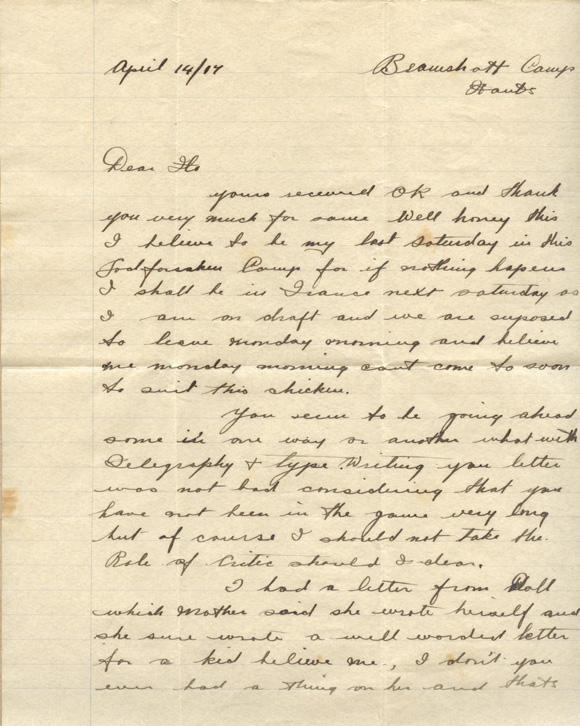 April 14/17 Bramshott Camp
Hants
Dear Flo
yours received OK and thank
you very much for same Well honey this
I believe to be my last saturday in this
Godforsaken Camp for if nothing hapens
I shall be in France next saturday as
I am on draft and we are suposed
to leave monday morning and believe
me monday morning cant come to soon
to suit this chicken.
You seem to be going ahead
some in one way or another what with
Telegraphy + Type Writing you letter
was not bad considering that you
have not been in the game very long
but of course I should not take the
Role of Critic should I dear.
I had a letter from Doll
which Mother said she wrote herself and
she sure wrote a well worded letter
for a kid believe me, I don't you
ever had a thing on her and thats